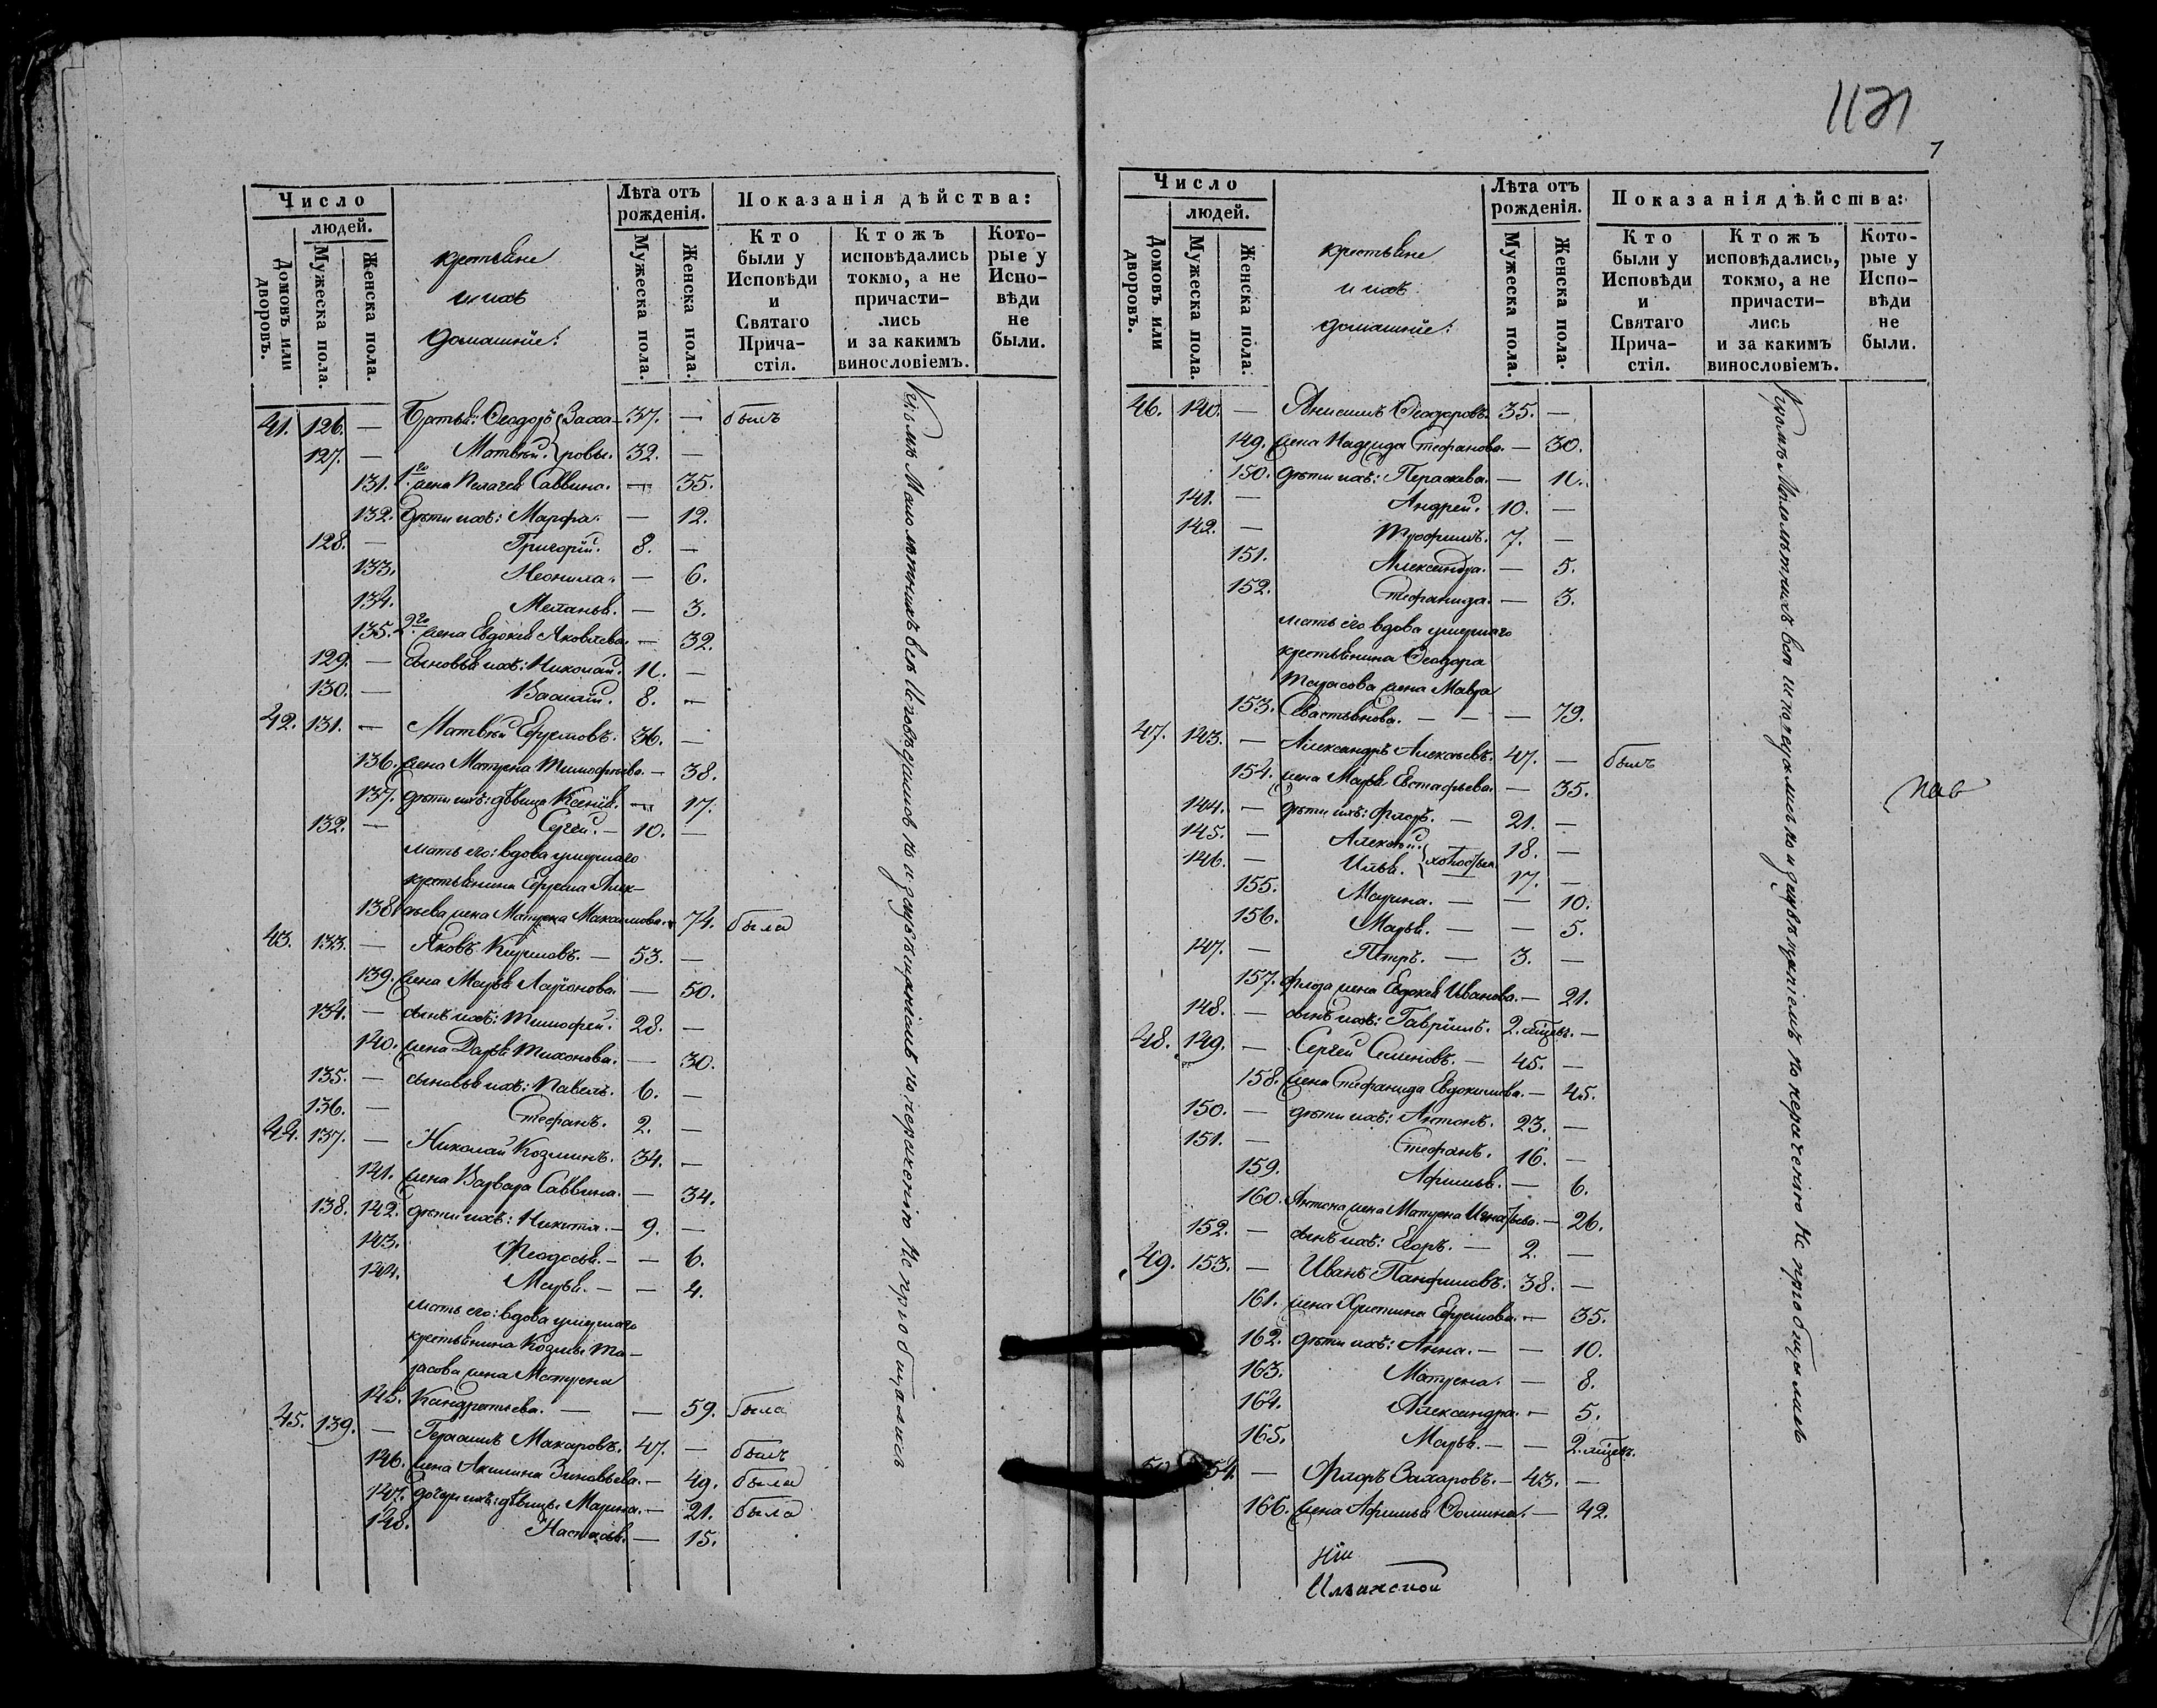 Число
людей.
Домовъ или дворовъ.
Мужеска пола.
Женска пола.
крестьяне
и ихъ
домашніе:
Лѣта отъ рожденія.
Мужеска пола.
Женска пола.
Показанія дѣйства:
Кто были у Исповѣди и Святаго Прича-стія.
Ктожъ исповѣдались токмо, а не причасти-лись и за какимъ винословіемъ.
Кото-рые у Испо-вѣди не были.
41. 126. — Братья: Ѳеодоръ { Заха- 37. — былъ
127. — Матвѣй. { ровы. 32. —
131. 1го жена Пелагея Саввина. — 35.
132. дѣти ихъ: Марфа. — 12.
128. — Григорій. 8. —
133. Неонила. — 6.
134. Меланья. — 3.
135. 2го жена Евдокія Яковлева. — 32.
129. — сыновья ихъ: Николай. 11. —
130. — Василій. 8. —
42. 131. — Матвѣй Ефремовъ. 36. —
136. жена Матрена Тимофѣева. — 38.
137. дѣти ихъ: дѣвица Ксенія. — 17.
132. — Сергей. — 10. —
мать его: вдова умершаго
крестьянина Ефрема Алек-
138. сѣева жена Матрена Макаимова. 74. была
43. 133. — Яковъ Кириловъ. — 53. —
139. жена Марья Ларіонова. — 50.
134. — сынъ ихъ: Тимофей. 28. —
140. жена Дарья Тихонова. — 30.
135. — сыновья ихъ: Павелъ. 6. —
136. — Стефанъ. 2. —
44. 137. — Николай Козминъ. 34. —
141. жена Варвара Саввина. — 34.
138. 142. дѣти ихъ: Никита. — 9. —
143. Ѳеодосья. — — 6.
144. Марья. — — 4.
мать его: вдова умершаго
крестьянина Козмы Та-
расова жена Матрена
145. Кандратьева. — — 59. была
45. 139. — Герасимъ Макаровъ. 47. — былъ
146. жена Акилина Зиновьева. — 49. была
147. дочери ихъ: дѣвицы Марина. — 21. была
148. Настасья. — 15.
Кромѣ Малолѣтнихъ всѣ Исповѣдались но и зъувѣщаніямъ по нерачению Не приобщались
1121
7
Число
людей.
Домовъ или дворовъ.
Мужеска пола.
Женска пола.
крестьяне
и ихъ
домашніе:
Лѣта отъ рожденія.
Мужеска пола.
Женска пола.
Показанія дѣйства:
Кто были у Исповѣди и Святаго Прича-стія.
Ктожъ исповѣдались, токмо, а не причасти-лись и за какимъ винословіемъ.
Кото-рые у Испо-вѣди не были.
46. 140. — Анисимъ Ѳеодоровъ. 35. —
149. жена Надежда Стефанова. — 30.
150. дѣти ихъ: Параскева. — 11.
141. — Андрей. 10. —
142. — Трофимъ. 7. —
151. Александра. — 5.
152. Стефанида. — 3.
мать его вдова умершаго
крестьянина Ѳеодора
Тарасова жена Мавра
153. Севастьянова. — — — 79.
47. 143. — Александръ Алексѣевъ. 47. — былъ
154. жена Марья Евстафьева. — 35.
144. — дѣти ихъ: Флоръ. — 21. —
145. — Алексѣй. { — 18. —
146. — Илья. { холостыя. 17. —
155. Марина. — — 10.
156. Марья. — — 5.
147. — Петръ. — 3. —
157. Флора жена Евдокія Иванова. — 21.
148. — сынъ ихъ: Гавріилъ. 2. мѣсяц. —
48. 149. — Сергей Семеновъ. — 45. —
158. жена Стефанида Евдокимова. — 45.
150. — дѣти ихъ: Антонъ. 23. —
151. — Стефанъ. 16. —
159. Афимья. — 6.
160. Антона жена Матрена Игнатьева. — 26.
152. — сынъ ихъ: Егоръ. — 2. —
49. 153. — Иванъ Панфиловъ. 38. —
161. жена Христина Ефремова. — 35.
162. дѣти ихъ: Анна. — — 10.
163. Матрена. — 8.
164. Александра. — 5.
165. Марья. — — 2. мѣсяц.
50. 154. — Флоръ Захаровъ. — 43. —
166. жена Афимья Ѳомина. — 42.
Кромѣ Малолѣтнихъ всѣ исповедались но и зъувѣщаніемъ по нерачению Не приобщались
пав
ніи
Ильинской